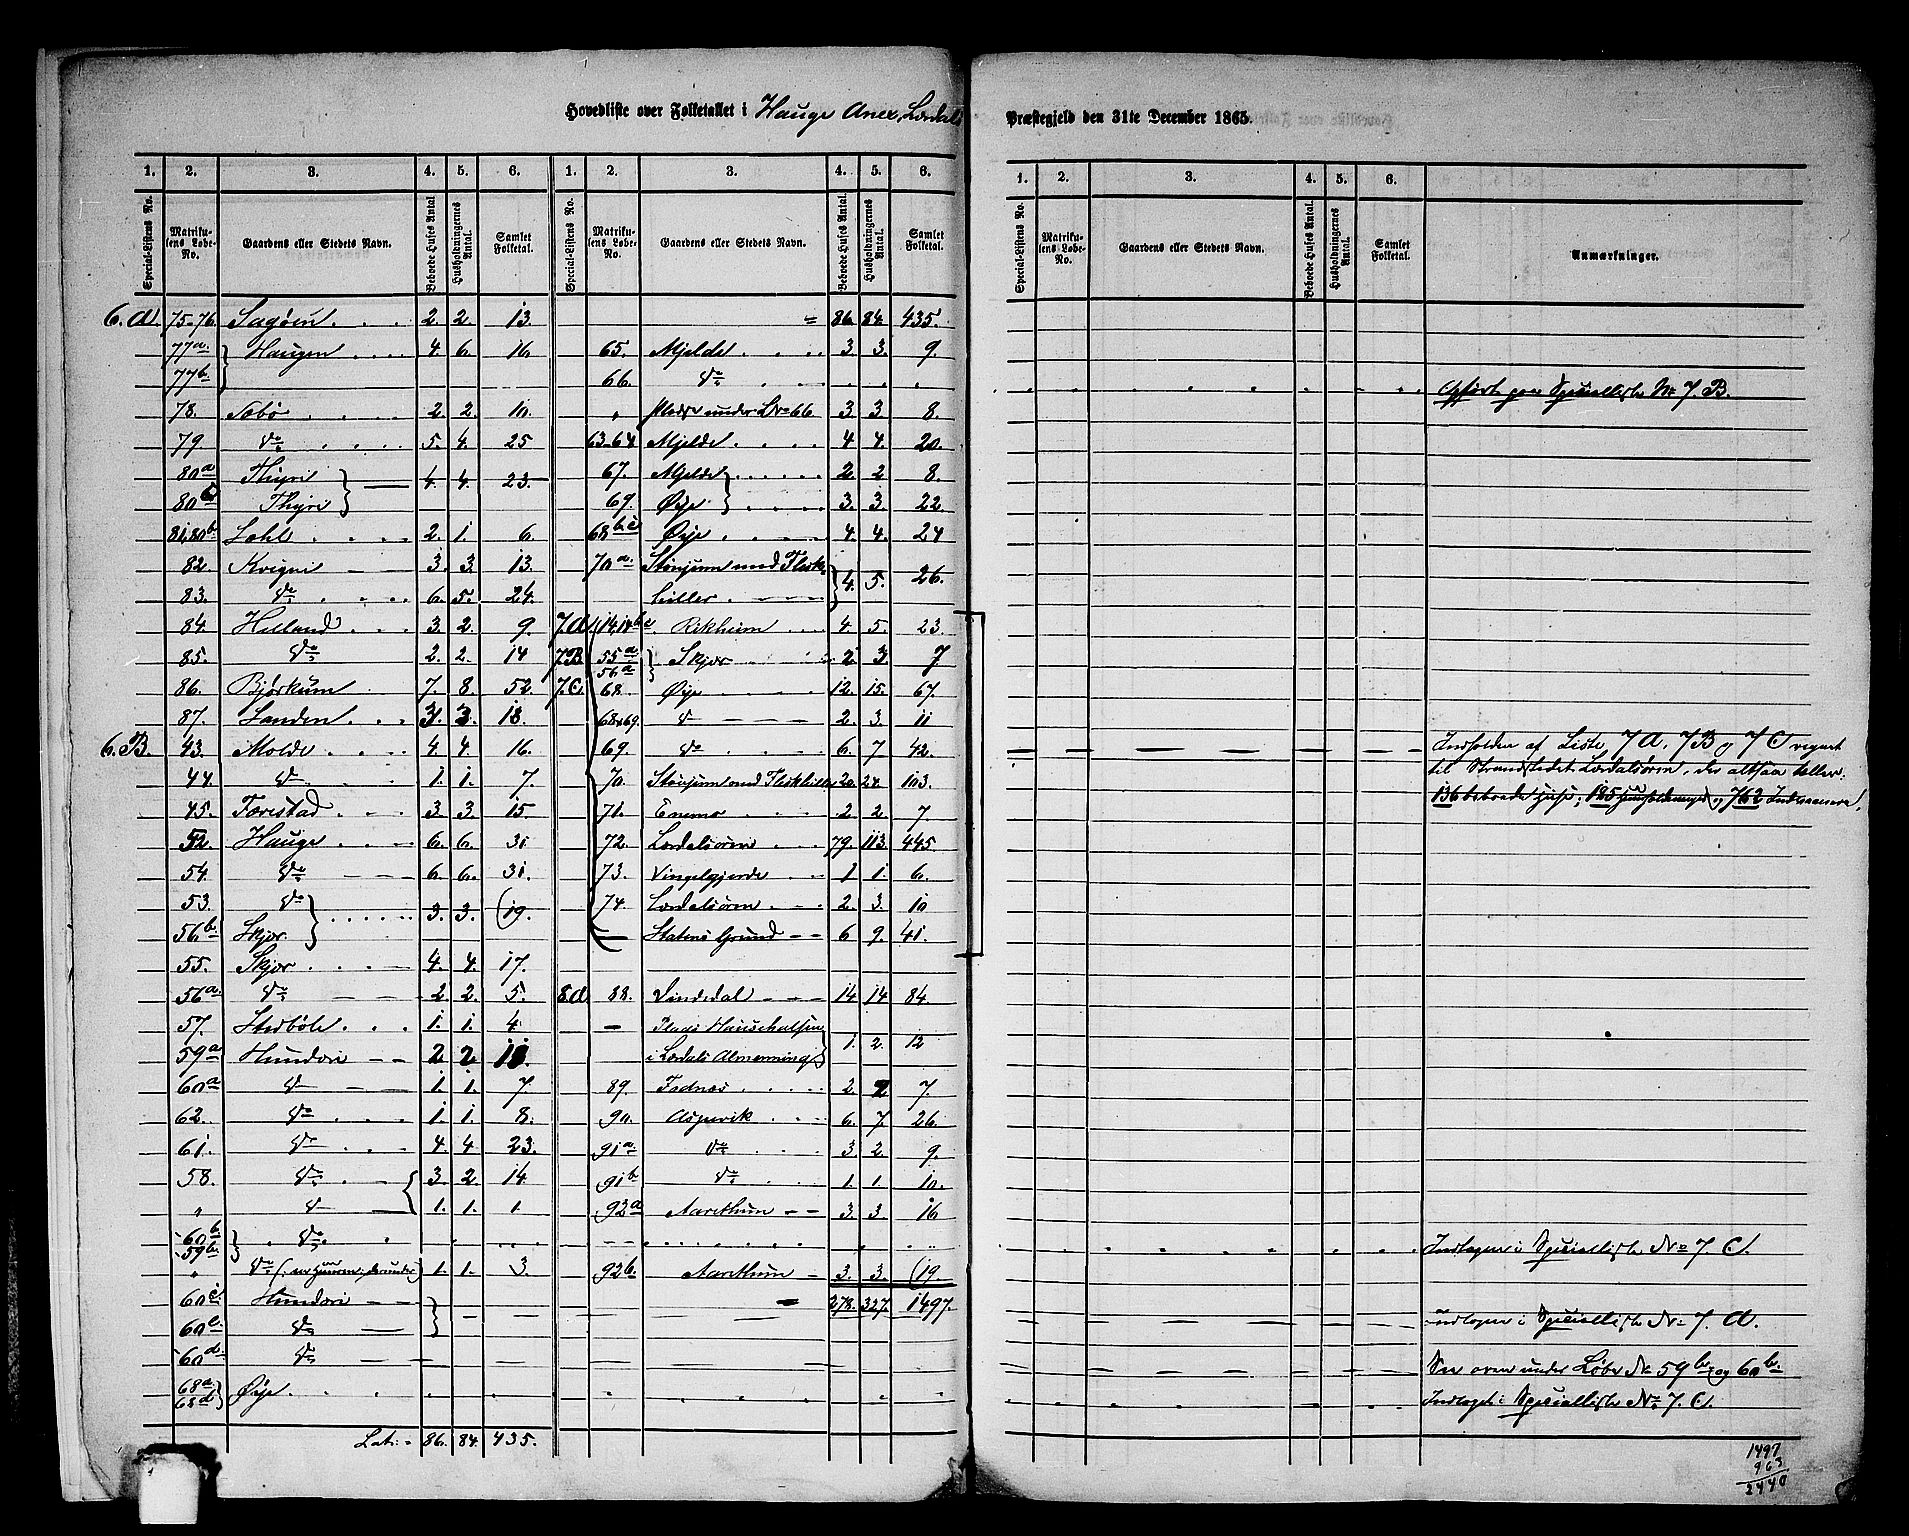 Hovedliste over Folketallet i Hauge Anex, Lærdals Præstegjeld den 31te December 1865.
1. 2. 3. 4. 5. 6. 1. 2. 3. 4. 5. 6.
Special-Listens No. Matrikulens Løbe-No. Gaardens eller Stedets Navn. Beboede Huses Antal Husholdningernes Antal. Samlet Folketal. Special-Listens No. Matrikulens Løbe-No. Gaardens eller Stedets Navn. Beboede Huses Antal Husholdningernes Antal. Samlet Folketal.
6. A. 75-76. Sagøien 2. 2. 13.
77a Haugen 4. 6. 16.
77b.
78. Sæbø 2. 2. 10.
79. Do 5. 4. 25
80a Thyri 4. 4. 23.
80c Thyri
81, 80b. 2. 1. 6.
82. Kvigni 3. 3. 13.
83. Do 6. 5. 24.
84. Hilland 3. 2. 9.
85. Do 2. 2. 14
86. Bjørkum 7. 8. 52.
87. Sanden 3. 3. 18.
6. B. 43. Molde 4. 4. 16.
44. Do 1. 1. 7.
45. Tørestad 3. 3. 15
52. Hauge 6. 6. 31
54. Do 6. 6. 31.
53. Do 3. 3. (19.
56b. Skjær.
55. Skjær 4. 4. 17.
56a. Do 2. 2. 5.
57. 1. 1. 4.
59a Hundøri 2 2 11.
60a Do 1 1. 7.
62. Do 1. 1. 8.
61. Do 4. 4 23.
58. Do 3. 2. 14
" Do 1. 1. 1.
60b Do
59b.
" Do 1. 1. 3.
60c. Hundøri
60e. Do
60d. Do
68a. Øye
68d
Lat: 86. 84. 435.
= 86. 84. 435.
65. Mjelde 3. 3. 9.
66. Do
" Pladse under L.No 66 3. 3. 8.
63-64 Mjelde 4 4. 20.
67. Mjelde 2. 2 8.
69. Øye 3. 3. 22.
68b c Øye 4. 4. 24
70a. Stønjum med Flesk-
hiller 4. 5. 26.
7. A 14, 14b c. Rikheim 4. 5. 23.
7. B 55a Skjær 2 3. 7
56a
7. C. 68. Øye 12. 15. 67.
68 & 69. Do 2. 3. 11
69. Do 6. 7 42.
70. Stønjum med Fleskhiller 20. 24. 103.
71. Enemo 2 2 7.
72. Lærdalsøren 79. 113. 445.
73. Vingelgjerde 1 1. 6.
74. Lærdalsøren 2. 3. 10
— Statens Grund 6 9. 41.
8. A 88. Vindedal 14 14 84.
— Plads
i Lærdals Almenning 1. 2. 12
89. Fadnæs 2. 2 7.
90. Aspevik 6. 7. 26.
91a Do 3. 2. 9.
91b. Do 1. 1. 10.
92a Aarethun 3. 3 16
92b. Aarethun 3. 3. (19.
278. 327. 1497.
1. 2. 3. 4. 5. 6.
Special-Listens No. Matrikulens Løbe-No. Gaardens eller Stedets Navn. Beboede Huses Antal. Husholdningernes Antal Samlet Folketal. Anmærkninger.
Opført paa Specialliste No 7. B.
Indholdet af Liste 7 A, 7 B og 7 C vegnet
til Strandstedet Lærdalsøren, der altsaa tæller:
136 beboede Huse; 185 Huusholdninger og 762 Indvaanere.
Indtagen i Specialliste No 7. C.
Indtagen i Specialliste No 7. A.
See oven under Løbe No 59b. og 60b.
Indtaget i Specialliste No 7. C.
1497
963
2440